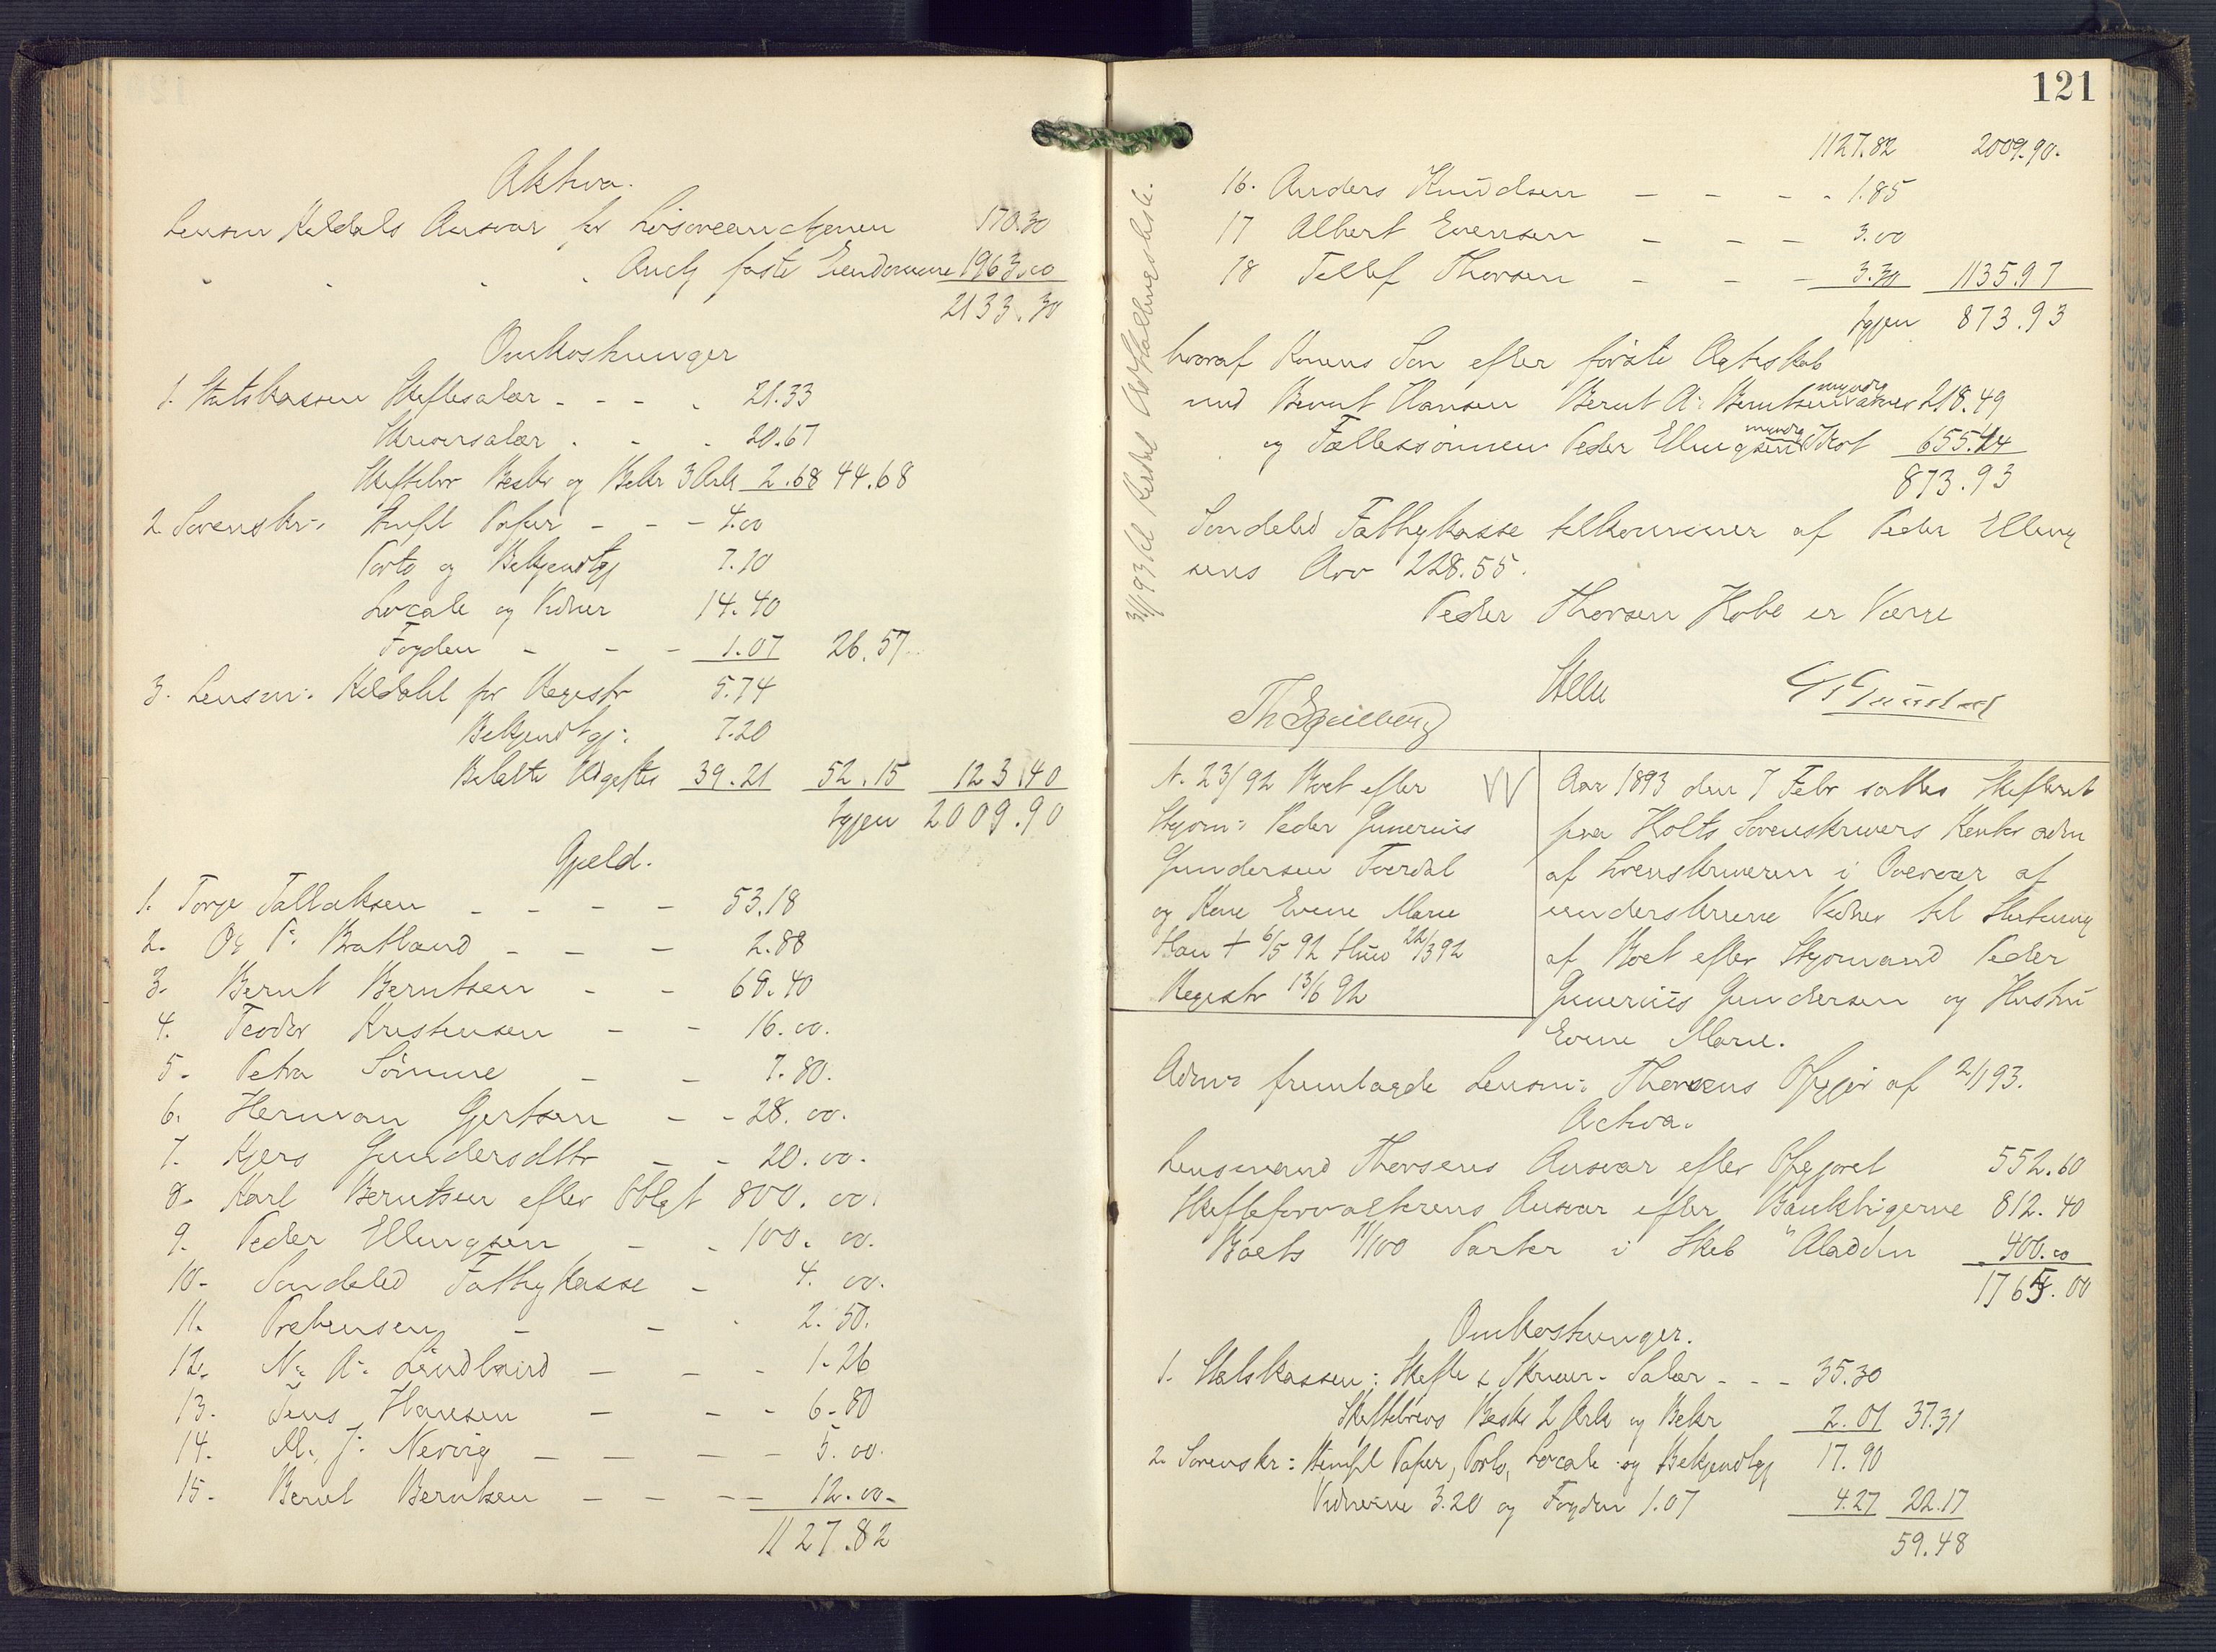 Aktiva.
Lensm Kildals Ansvar for Løsøreauctionen 170.30
" " " Auct faste Eiendomme 1963.00
2133.30
Omkostninger
1. Statskassen Skiftesalær - - - 21.33
Skriversalær - - - 20.67
Skiftebr Beskr og Bekr 3 Ark 2.68 44.68
2. Sorenskr: Stempl Papir - - - 4.00
Porto og Bekjendtgj 7.10
Locale og Vidner 14.40
Fogden - - - 1.07 26.57
3. Lensm: Kildahl for Registr 5.74
Bekjendtgj: 7.20
Betalte Udgifter 39.21 52.15 123.40
Igjen 2009.90
Gjeld.
1. Torje Tallaksen - - - - 53.18
2. Og P. Bratland - - - 2.88
3. Bernt Berntsen - - 69.40
4. Teodor Kristensen - - 16.00.
5. Petra Sømme - - 7.80.
6. Herman Gjertsen - - 28.00.
7. Kjers Gundersdttr - - 20.00.
8. Karl Berntsen efter Oblgt 800.00.
9. Peder Ellingsen - - 100.00.
10. Søndeled Fattigkasse - 4.00.
11. Prebensen - - - 2.50.
12. N. A. Lindland - - - 1.26
13. Jens Hansen - - - 6.80
14. M. J. Nevrig - - - - 5.00.
15. Bernt Berntsen - - - - 12.00.
1127.82
121
1127.82 2009.90.
16. Anders Knudsen - - - - 1.85
17 Albert Evensen - - - 3.00
18 Tellef Thorsen - - - 3.30 1135.97
Igjen 873.93
hvoraf Konens Søn efter første Ægteskab
med Bernt Hansen Bernt A. Berntsen myndig arver 218.49
og Fællessønnen Peder Ellingsen myndig Holt 655.44
873.93
Søndeled Fattigkasse tilkommer af Peder Elling
sens Arv 228.55.
Peder Thorsen Hobe er Værge
Stelle
Th Speilberg
G Gunstad
N. 23/92 Boet efter
Styrm: Peder Gunerius
Gundersen Tverdal
og Kone Evene Marie
Han + 6/5 92 Hun 22/3 92
Registr 13/6 92
Aar 1893 den 7 Febr sattes Skifteret
paa Holts Sorenskrivers Kontor adm
af Sorenskriveren i Overvær af
underskrevne Vidner til Slutning
af Boet efter Styrmand Peder
Gunerius Gundersen og Hustru
Evene Marie.
Admin fremlagde Lensm: Thorsens Opgjør af 2/1 93.
Activa.
Lensmand Thorsens Ansvar efter Opgjøret 552.60
Skifteforvalterens Ansvar efter Bankbøgerne 812.40
Boets 11/100 Parter i Skib "Aladdin 400.00
1765.00
Omkostninger.
1. Statskassen: Skifte & Skriver-Salær - - - 35.30
Skiftebrevs Beskr 2 Ark og Bekr 2.01 37.31
2. Sorenskr: Stempl Papir, Porto, Locale og Bekjendtgj 17.90
Vidnerne 3.20 og Fogden 1.07 4.27 22.17
59.48